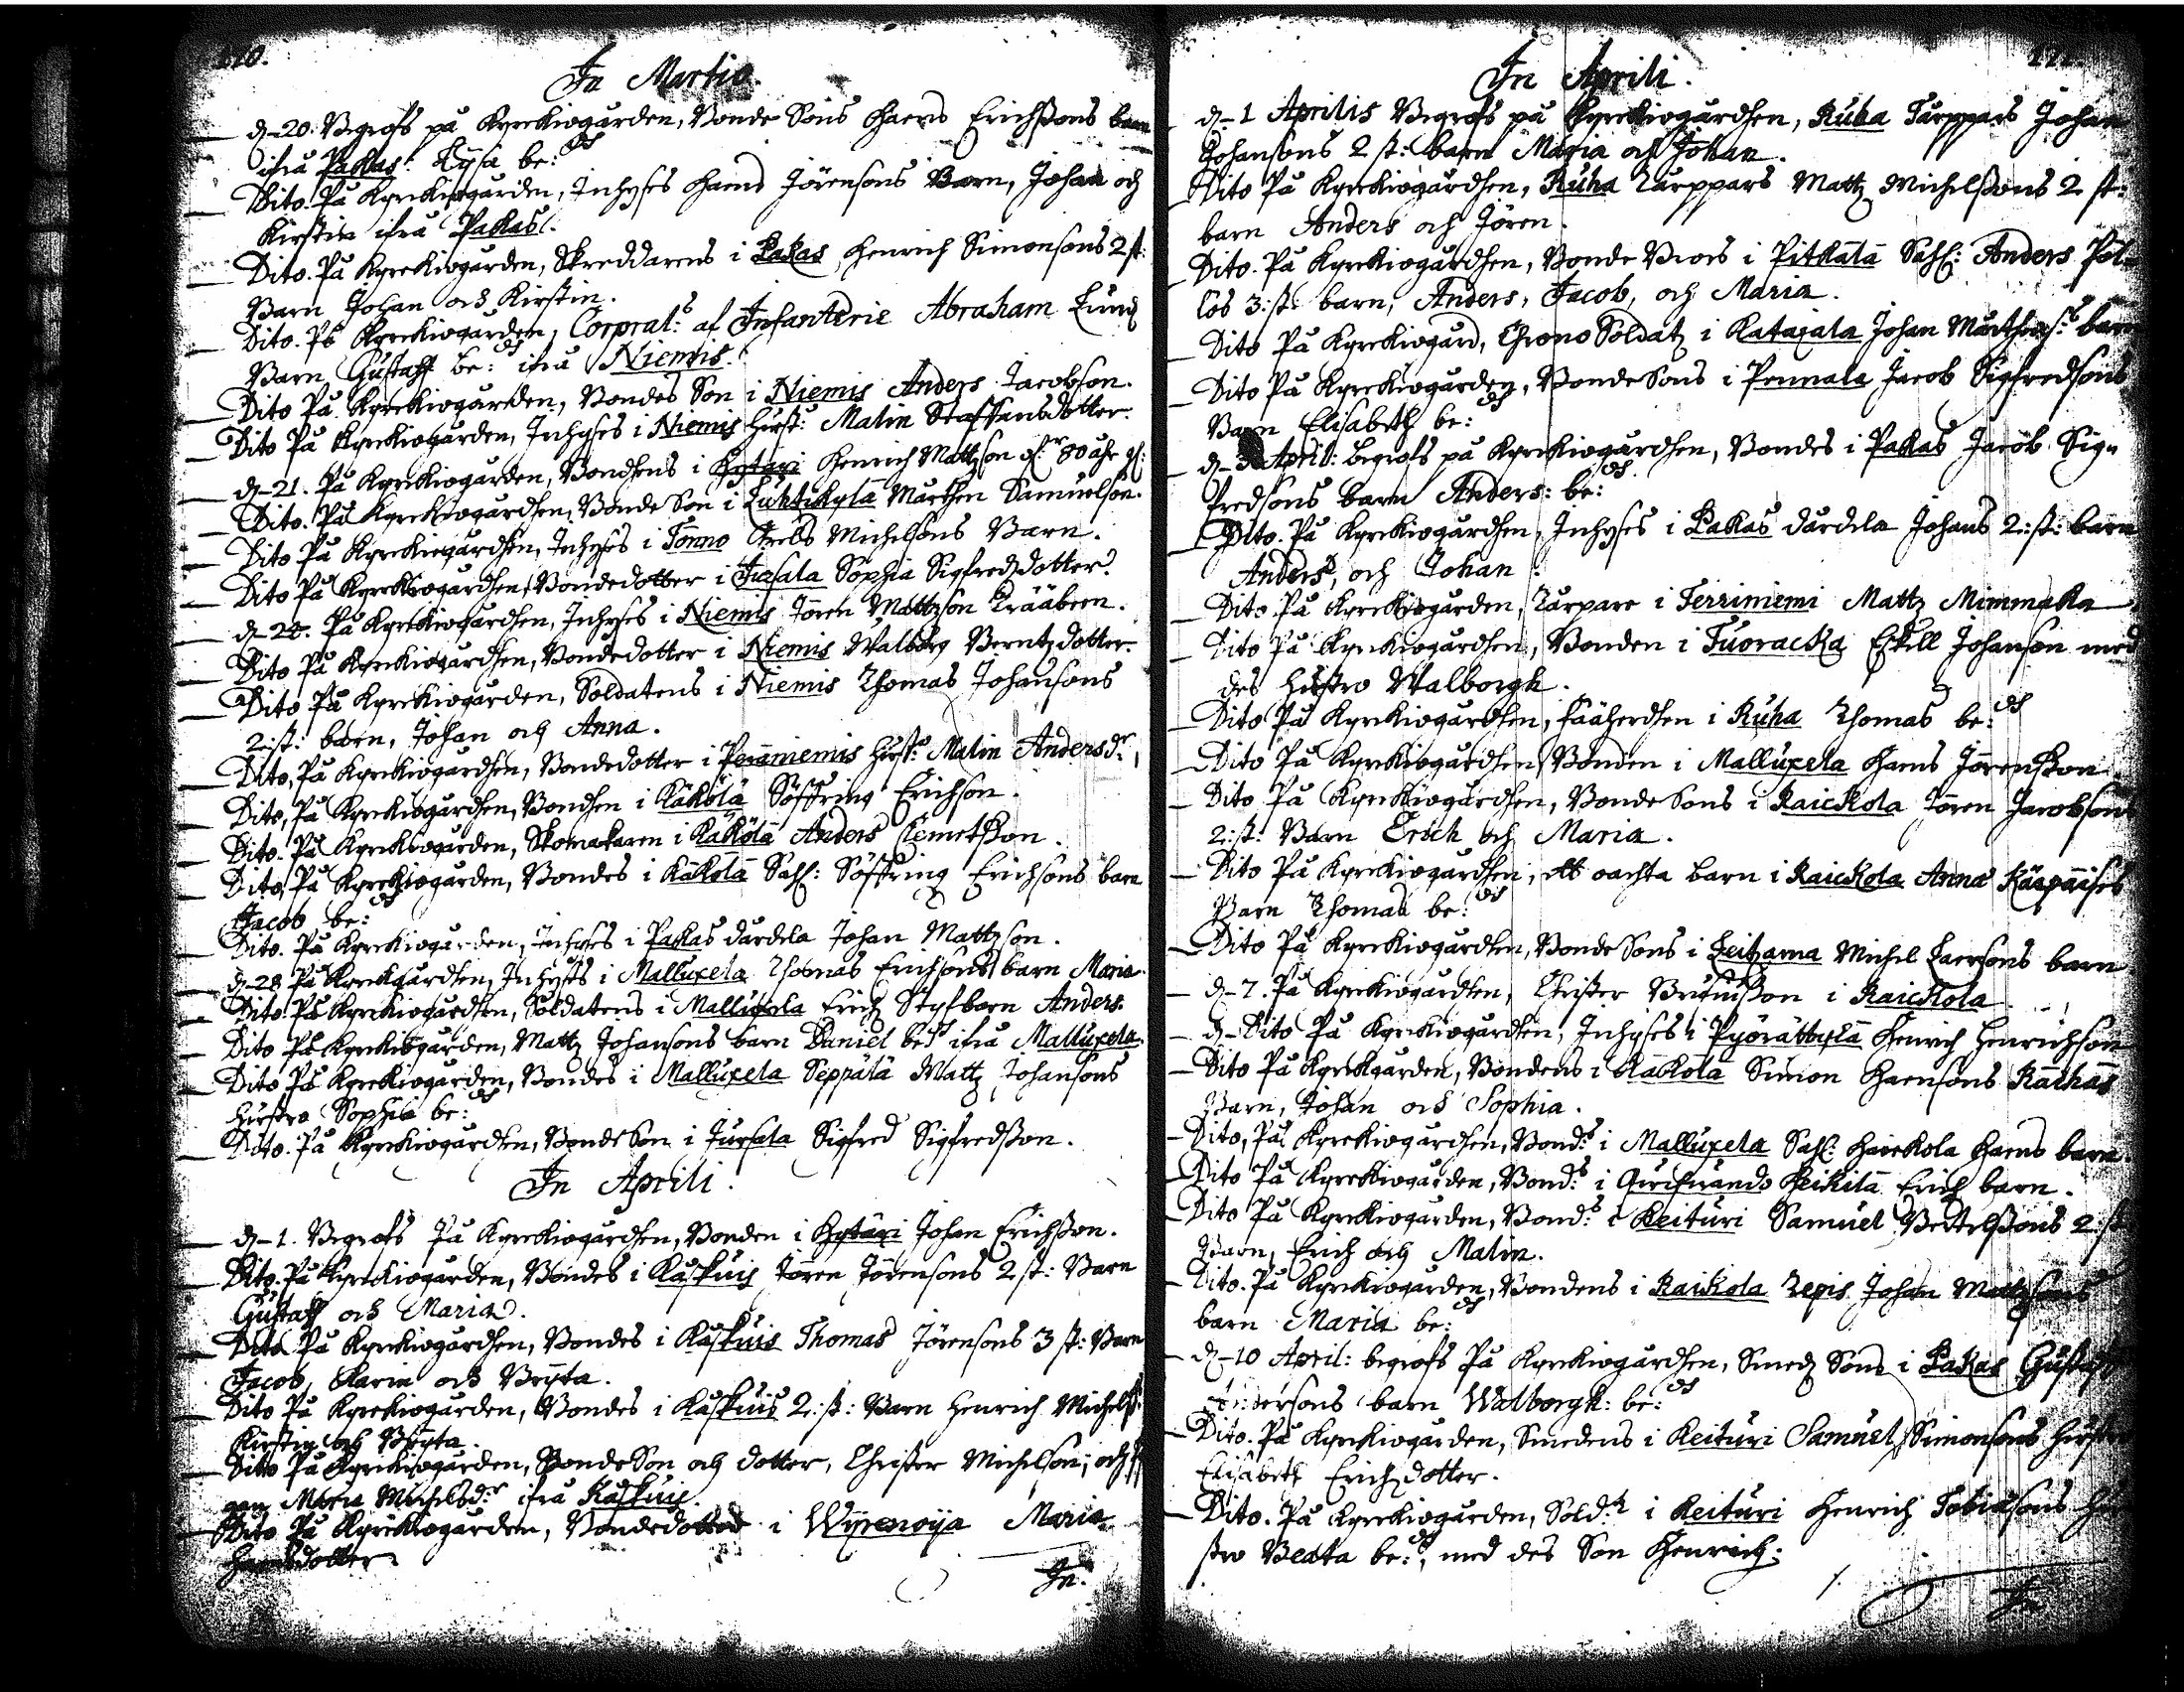 In Martio.
d. 20. Begrofs på Kyrckiogården, Bonde Sons Hans Erichssons barn
ifrå Pakas: Lysa be:dh
Dito. På Kyrckiogården, Inhyses Hans Jörensons Barn, Johan och
Kirstin ifrå Pakas.
Dito. På Kyrckiogården, Skreddarens i Pakas, Henrich Simonsons 2 st:
Barn Johan och Kirstin.
Dito. På Kyrckiogården, Corpral:s af Infanterie Abraham Lund
Barn Gustaff be:dh ifrå Niemis.
Dito På Kyrckiogården, Bondes Son i Niemis Anders Jacobson.
Dito På Kyrckiogården, Inhyses i Niemis Hust: Malin Staffansdotter.
d. 21. På Kyrckiogården, Bondens i Hytäri Henrich Mattzson 80 åhr gl:
Dito. På Kyrckiogården, Bonde Son i Luhtikylä Mårthen Samuelson.
Dito På Kyrckiogården, Inhyses i Tönno Michelsons Barn.
Dito På Kyrckiogården, Bondedotter i Jursala Sophia Sigfredzdotter.
d. På Kyrckiogården, Inhyses i Niemis Jören Mattzson
Dito På Kyrckiogården, Bondedotter i Niemis Walborg Berntzdotter.
Dito På Kyrckiogården, Soldatens i Niemis Thomas Johansons
2: st: barn, Johan och Anna.
Dito, På Kyrckiogården, Bondedotter i Peräniemis Hust: Malin Andersd:r
Dito, På Kyrckiogården, Bonden i Käkölä Söffring Erichson.
Dito. På Kyrckiogården, Skomakaren i Käkölä Anders Clemetsson.
Dito, På Kyrckiogården, Bondes i Käkölä Sahl: Söffring Erichsons barn
Jacob be:dh
Dito. På Kyrckiogården, Inhyses i Pakas Johan Mattzson.
d. 28 På Kyrckiogården, Inhyses i Malluxela Thomas Erichsons barn Maria.
Dito. På Kyrckiogården, Soldatens i Malluxela Erich Styfbarn Anders.
Dito På Kyrckiogården, Mattz Johansons barn Daniel be:dh ifrå Malluxela.
Dito På Kyrckiogården, Bondes i Malluxela Seppälä Mattz Johansons
Hustro Sophia be:dh
Dito. På Kyrckiogården, Bonde Son i Jursala Sigfred Sigfredsson.
In Aprili.
d. 1. Begrofs På Kyrckiogården, Bonden i Hytäri Johan Erichsson.
Dito. På Kyrckiogården, Bondes i Kaskuis Jören Jörensons 2 st: Barn
Gustaff och Maria.
Dito På Kyrckiogården, Bondes i Kaskuis Thomas Jörensons 3 st: Barn
Jacob, Karin och Bryta.
Dito På Kyrckiogården, Bondes i Kaskuis 2: st: Barn Henrich Michels
Kirstin och Bryta.
Dito På Kyrckiogården, Bonde Son och dotter, Christer Michelson, och
Maria Michelsd:r ifrå Kaskuis.
Dito På Kyrckiogården, Bondedotter i Wÿrenoÿa Maria
Hansdotter.
In.
In Aprili.
d. 1 Aprilis Begrofs på Kyrckiogården, Ruha Torppars Johan
Johansons 2 st: barn Maria och Johan.
Dito På Kyrckiogården, Ruha Torppars Mattz Michelssons 2 st:
barn Anders och Jören.
Dito. På Kyrckiogården, Bonde i Pitkälä Sahl: Anders Pol-
los 3: st: barn, Anders, Jacob, och Maria.
Dito På Kyrckiogård, Chrono Soldatz i Katajala Johan Mårthens: barn
Dito På Kyrckiogården, Bonde Sons i Pennala Jacob Sigfredsons
Barn Elisabeth be:dh
d. April: begrofs på Kyrckiogården, Bondes i Pakas Jacob Sig-
fredsons barn Anders: be:dh
Dito. På Kyrckiogården, Inhyses i Pakas Johans 2: st: barn
Anders, och Johan.
Dito. På Kyrckiogården, Torpare i Terriniemi Mattz Mimmaka
Dito På Kyrckiogården, Bonden i Tuoracka Eskill Johanson med
des Hustro Walborgh.
Dito På Kyrckiogården, Fääherden i Ruha Thomas be:dh
Dito På Kyrckiogården Bonden i Malluxela Hans Jörensson
Dito På Kyrckiogården, Bonde Sons i Raickola Jören Jacobsons
2: st: Barn Erich och Maria.
Dito På Kyrckiogården, ett oächta barn i Raickola Annas
Barn Thomas be:dh
Dito På Kyrckiogården, Bonde Sons i Leitzama Michel Larsons barn
d. 7. På Kyrckiogården, Christer i Raickola.
d. Dito På Kyrckiogården, Inhyses i Pyörättylä Henrich Henrichson
Dito På Kyrckgården, Bondens i Käkölä Simon Hansons
Barn, Johan och Sophia.
Dito, På Kyrckiogården, Bond:s i Malluxela Sahl: Hans barn.
Dito På Kyrckiogården, Bond:s i Heikilä Erich barn.
Dito På Kyrckiogården, Bond:s i Keituri Samuel Bertelssons 2: st
Barn, Erich och Malin.
Dito. På Kyrckiogården, Bondens i Raikola Johan Mattzsons
barn Maria be:dh
d. 10 April: begrofs På Kyrckiogården, Smedz Sons i Pakas Gustaff
Andersons barn Walborgh: be:dh
Dito. På Kyrckiogården, Smedens i Keituri Samuel Simonsons Hustro
Elisabeth Erichzdotter.
Dito. På Kyrckiogården, Sold:s i Keituri Henrich Tobiasons Hu-
stro Beata be:dh, med des Son Henrich.
In